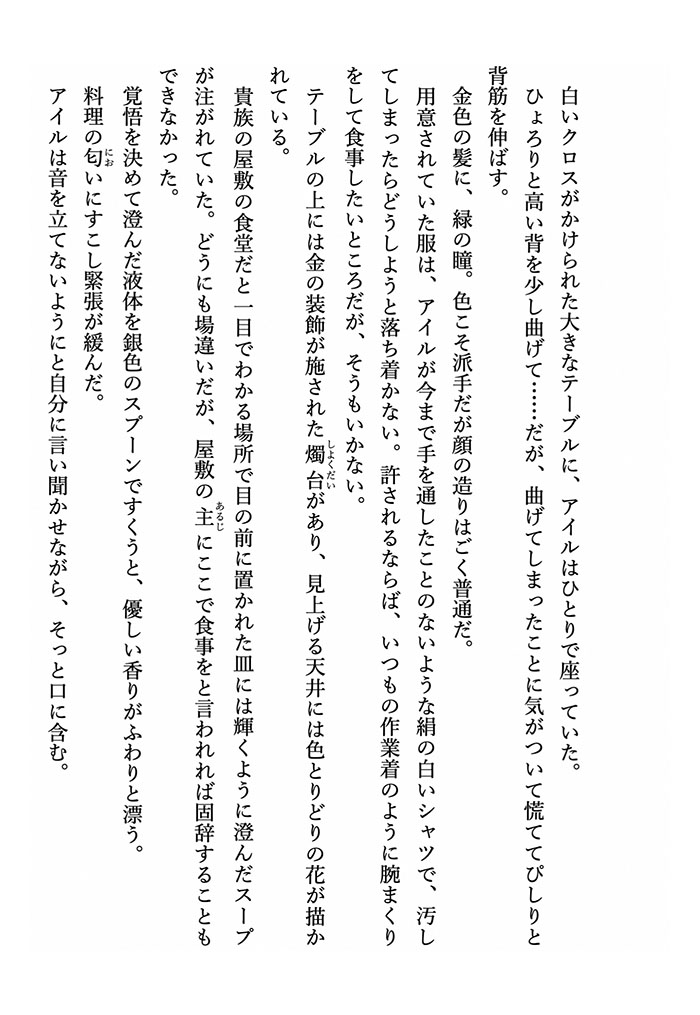 白いクロスがかけられた大きなテーブルに、アイルはひとりで座っていた。
ひょろりと高い背を少し曲げて……だが、曲げてしまったことに気がついて慌ててぴしりと
背筋を伸ばす。
金色の髪に、緑の瞳。色こそ派手だが顔の造りはごく普通だ。
用意されていた服は、アイルが今まで手を通したことのないような絹の白いシャツで、汚し
てしまったらどうしようと落ち着かない。許されるならば、いつもの作業着のように腕まくり
をして食事したいところだが、そうもいかない。
テーブルの上には金の装飾が施された燭台しよくだいがあり、見上げる天井には色とりどりの花が描か
れている。
貴族の屋敷の食堂だと一目でわかる場所で目の前に置かれた皿には輝くように澄んだスープ
が注がれていた。どうにも場違いだが、屋敷の主あるじにここで食事をと言われれば固辞することも
できなかった。
覚悟を決めて澄んだ液体を銀色のスプーンですくうと、優しい香りがふわりと漂う。
料理の匂においにすこし緊張が緩んだ。
アイルは音を立てないようにと自分に言い聞かせながら、そっと口に含む。